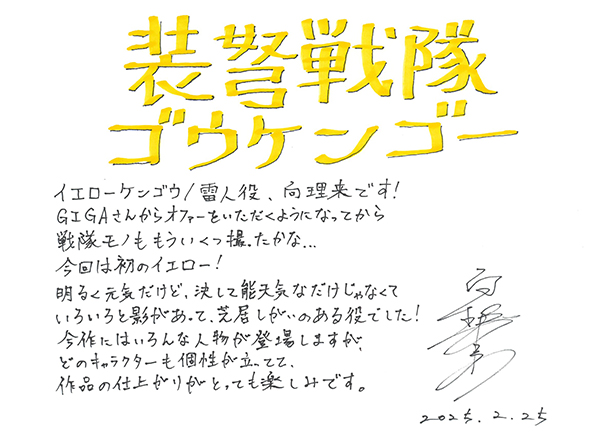 装弩戦隊
ゴウケンゴー
イエローケンゴウ/雷人役、向理来です!
GIGAさんからオファーをいただくようになってから
戦隊モノももういくつ撮ったかな...
今回は初のイエロー!
明るく元気だけど、決して能天気なだけじゃなくて
いろいろと影があって、芝居しがいのある役でした!
今作にはいろんな人物が登場しますが、
どのキャラクターも個性が立ってて、
作品の仕上がりがとっても楽しみです。
向理来
2025.2.25